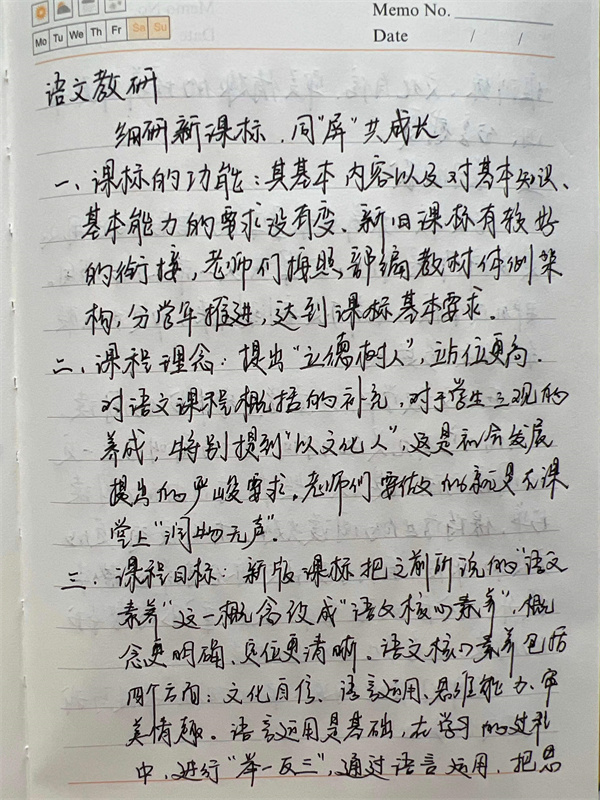 Memo No.
Mo Tu We Th Fr Sa Su
Date / /
语文教研
细研新课标，同“屏”共成长
一、课标的功能：其基本内容以及对基本知识、
基本能力的要求没有变、新旧课标有较好
的衔接，老师们按照部编教材体例架
构，分学年推进，达到课标基本要求。
二、课程理念：提出“立德树人”，站位更高.
对语文课程概括的补充，对于学生三观的
养成，特别提到“以文化人”，这是社会发展
提出的严峻要求，老师们要做的就是在课
堂上“润物无声”.
三、课程目标：新版课标把之前所说的“语文
素养”这一概念改成“语文核心素养”，概
念更明确、定位更清晰。语文核心素养包括
四个方面：文化自信、语言运用、思维能力、审
美情趣。语言运用是基础，在学习的过程
中，进行“举一反三”，通过语言运用，把思